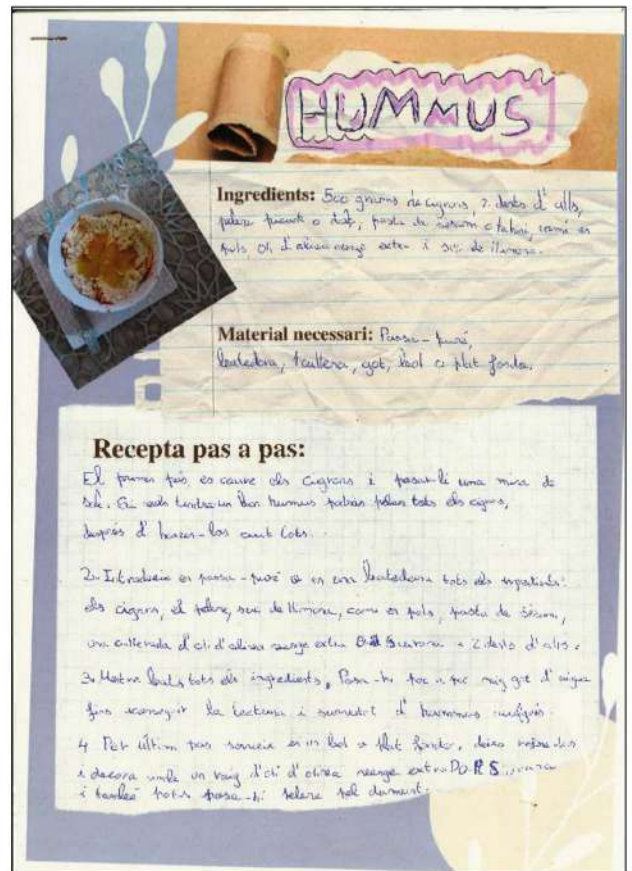 HUMMUS
Ingredients: 500 grams de cigrons, 2 dents d'alls,
pebre picant o dolç, pasta de sesam o tahini, comí en
pols, oli d'oliva verge extra i suc de llimona.
Material necessari: Passa-puré,
batedora, 1 cullera, got, bol o plat fondo.
Recepta pas a pas:
El primer pas, es coure els cigrons i posar-li una mica de
sal. Si vols tindre un bon hummus podràs pelar tots els cigrons,
després d' haver-los cuit tots.
2. Introdueix en passa-puré o en una batedora tots els ingredients:
els cigrons, el pebre, suc de llimona, comí en pols, pasta de sésam,
una cullerada d'oli d'oliva verge extra i 2 dents d'alls.
3. Mentre bats tots els ingredients, Posa-hi poc a poc mig got d'aigua
fins aconseguir la textura i d' hummus
4 Per últim pas serveix en un bol o plat fondo, deixa refredar
i decora amb un raig d'oli d'oliva verge extra
i també pots posa-hi pebre pel damunt.